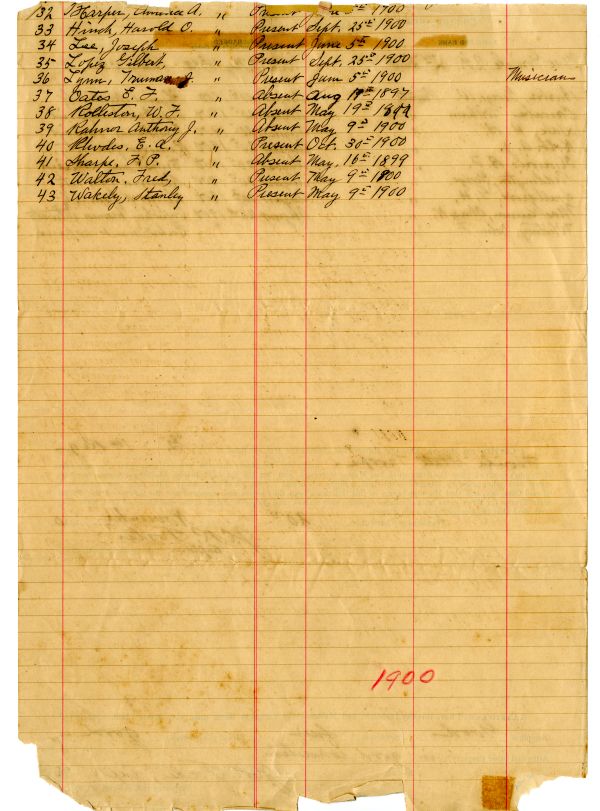 32 Harper, America A. " Present June 5th 1900
33 Hinch, Harold O. " Present Sept. 25th 1900
34 Lee, Joseph " Present June 5th 1900
35 Lopez Gilbert, " Present Sept. 25th 1900
36 Lynn, Truman J. " Present June 5th 1900 Musician
37 Oates E. F. " Absent Aug 1897
38 Rolliston, W. F. " Absent May 19th
39 Anthony J. " Absent May 9th 1900
40 Rhodes, E. A. " Present Oct. 30th 1900
41 Sharpe, F. P. " Absent May. 16th 1899
42 Walton, Fred, " Present May 9th 1900
43 Wakely, Stanley " Present May 9th 1900
1900